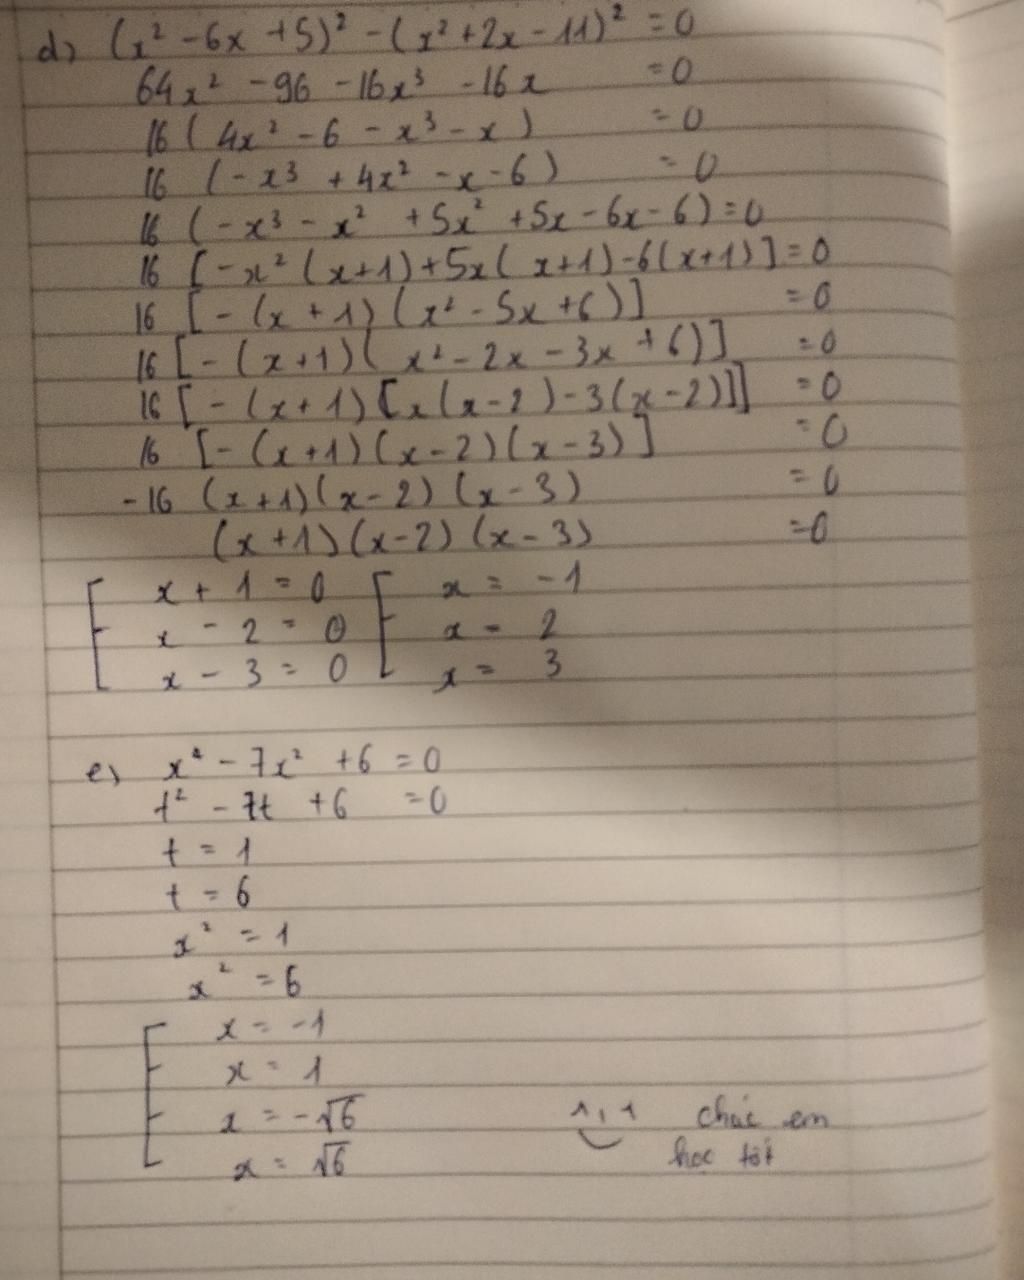 d) (x² - 6x + 5)² - (x² + 2x - 11)² = 0
64x² - 96 - 16x³ - 16x = 0
16 (4x² - 6 - x³ - x) = 0
16 (-x³ + 4x² - x - 6) = 0
16 (-x³ - x² + 5x² + 5x - 6x - 6) = 0
16 [-x² (x+1) + 5x (x+1) - 6(x+1)] = 0
16 [-(x+1) (x² - 5x + 6)] = 0
16 [-(x+1) (x² - 2x - 3x + 6)] = 0
16 [-(x+1) [x(x-2) - 3(x-2)]] = 0
16 [-(x+1) (x-2) (x-3)] = 0
-16 (x+1) (x-2) (x-3) = 0
(x+1) (x-2) (x-3) = 0
x + 1 = 0 x = -1
x - 2 = 0 x = 2
x - 3 = 0 x = 3
e) x⁴ - 7x² + 6 = 0
t² - 7t + 6 = 0
t = 1
t = 6
x² = 1
x² = 6
x = -1
x = 1
x = -√6 chúc em
x = √6 học tốt